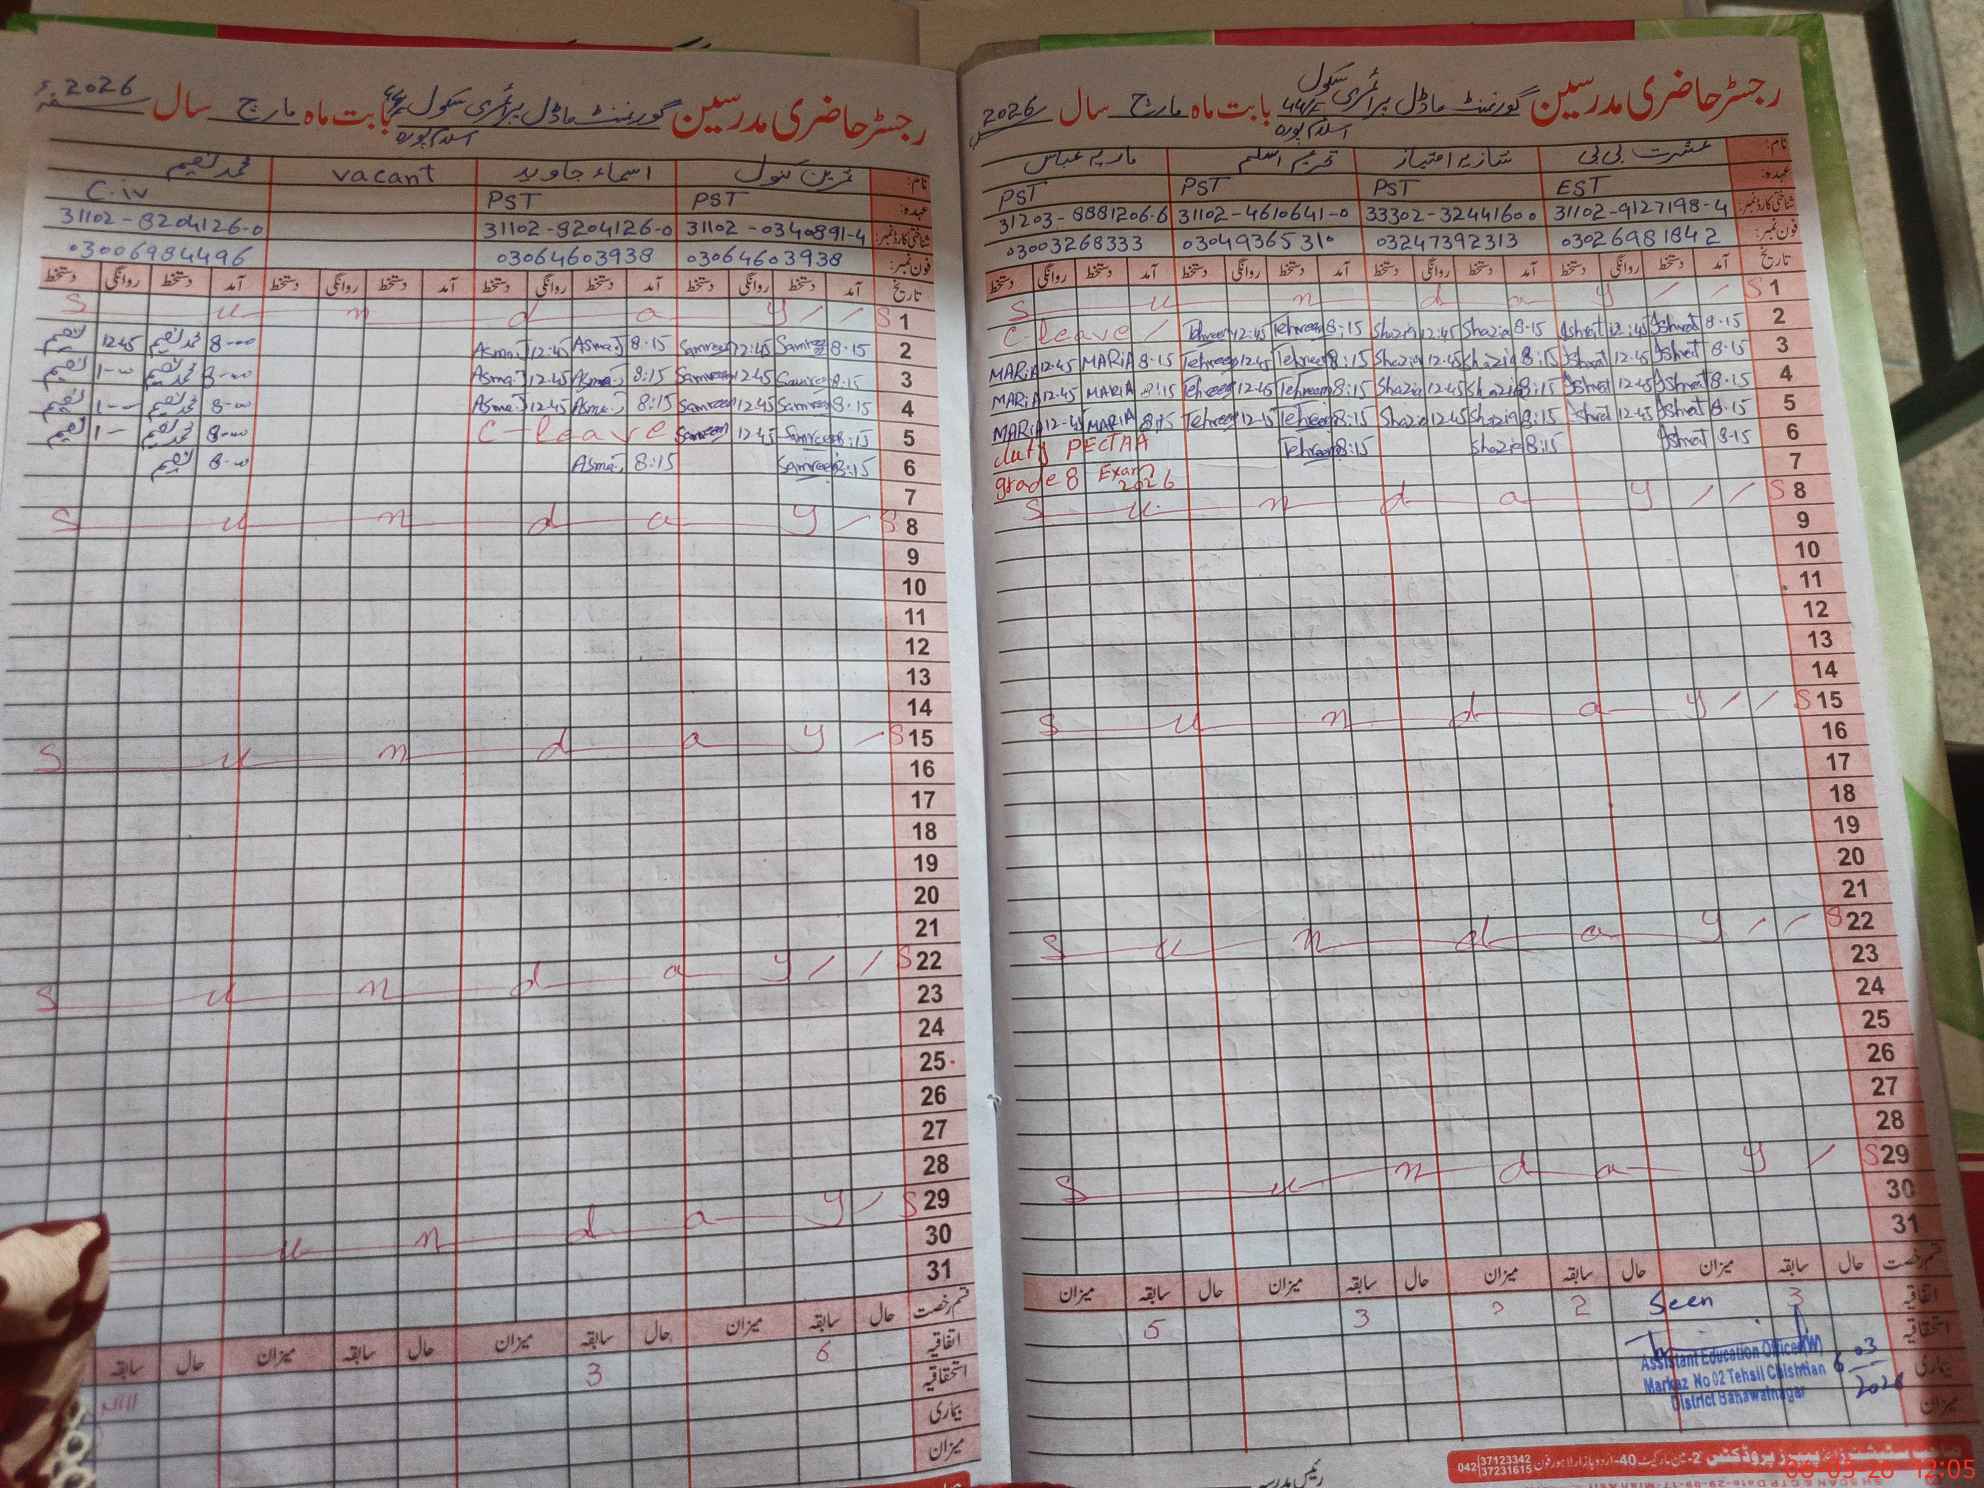 رجسٹر حاضری مدرسین گورنمنٹ ماڈل پرائمری سکول 44/F اسلام پورہ بابت ماہ مارچ سال 2026
نام: عشرت بی بی شازیہ امتیاز تحریم اسلم ماریہ عباس
عہدہ: EST PST PST PST
شناختی کارڈ نمبر: 31102-9127198-4 33302-3244160 0 31102-4610641-0 31203-8881206-6
فون نمبر: 03026981842 03247392313 03049365310 03003268333
تاریخ آمد دستخط روانگی دستخط آمد دستخط روانگی دستخط آمد دستخط روانگی دستخط آمد دستخط روانگی دستخط
1 S u n d a y
2 8-15 Ishrat 12:45 Ishrat 8-15 Shazia 12:45 Shazia 8:15 Tehreem 12:45 Tehreem C-leave
3 8-15 Ishrat 12.45 Ishrat 8:15 Shazia 12.45 Shazia 8:15 Tehreem 12.45 Tehreem 8-15 MARIA 12.45 MARIA
4 8-15 Ishrat 12.45 Ishrat 8:15 Shazia 12.45 Shazia 8:15 Tehreem 12.45 Tehreem 8:15 MARIA 12.45 MARIA
5 8-15 Ishrat 12.45 Ishrat 8:15 Shazia 12.45 Shazia 8:15 Tehreem 12.45 Tehreem 8:15 MARIA 12-45 MARIA
6 8-15 Ishrat 8:15 Shazia 8:15 Tehreem duty PECTAA
7 grade 8 Exam 2026
8 S u n d a y
9
10
11
12
13
14
15 S u n d a y
16
17
18
19
20
21
22 S u n d a y
23
24
25
26
27
28
29 S u n d a y
30
31
قسم رخصت حال سابقہ میزان حال سابقہ میزان حال سابقہ میزان حال سابقہ میزان
اتفاقیہ 3 2 3 5
Seen
استحقاقیہ
بیماری
میزان
Assistant Education Officer(W)
Markaz No 02 Tehsil Chishtian
District Bahawalnagar
6 03 2026
042 37123342
37231615
رئیس مدرسہ
06-03-26 12:05
رجسٹر حاضری مدرسین گورنمنٹ ماڈل پرائمری سکول اسلام پورہ بابت ماہ مارچ سال 2026ء
نام: ثمرین بتول اسماء جاوید vacant محمد نعیم
عہدہ: PST PST C.iv
شناختی کارڈ نمبر: 31102-0340891-4 31102-8204126-0 31102-8204126-0
فون نمبر: 03064603938 03064603938 03006984496
تاریخ آمد دستخط روانگی دستخط آمد دستخط روانگی دستخط آمد دستخط روانگی دستخط آمد دستخط روانگی دستخط
1 S u n d a y
2 8-15 Samreen 12:45 Samreen 8-15 Asma.J 12:45 Asma.J 8-00 محمد نعیم 12 45 نعیم
3 8-15 Samreen 12.45 Samreen 8:15 Asma.J 12.45 Asma.J 8-00 محمد نعیم 1-00 نعیم
4 8-15 Samreen 12.45 Samreen 8:15 Asma.J 12.45 Asma.J 8-00 محمد نعیم 1-- نعیم
5 8:15 Samreen 12.45 Samreen C-leave 8-00 محمد نعیم 1- نعیم
6 8:15 Samreen 8:15 Asma.J 8-00 نعیم
7
8 S u n d a y
9
10
11
12
13
14
15 S u n d a y
16
17
18
19
20
21
22 S u n d a y
23
24
25
26
27
28
29 S u n d a y
30
31
قسم رخصت حال سابقہ میزان حال سابقہ میزان حال سابقہ میزان حال سابقہ
اتفاقیہ 6 3
استحقاقیہ
بیماری
میزان